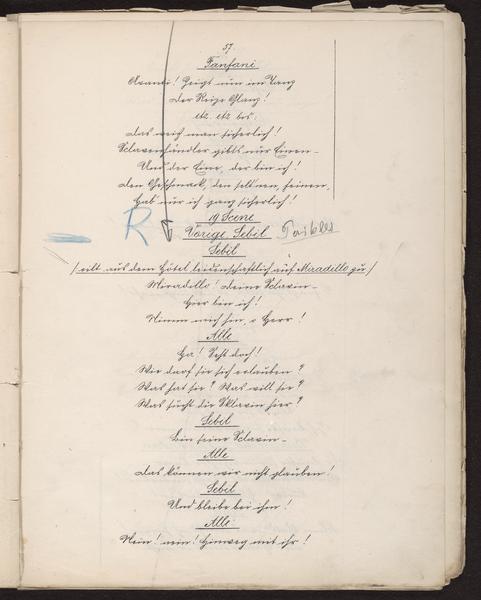 57.
Fanfani
Avanti! Zeigt nun im Tanz
Der Reize Glanz!
etz. etz bis:
Das weiß man sicherlich!
Sclavenhändler gibts nur Einen –
Und der Eine, der bin ich!
Den Geschmack, den selt'nen, feinen,
Hab' nur ich ganz sicherlich!
19 Scene
R Vorige Sebil
Sebil
/ eilt aus dem Hôtel leidenschaftlich auf Miradillo zu /
Miradillo! Deine Sclavin –
Hier bin ich!
Nimm mich hin, o Herr!
Alle
Ha! Seht doch!
Wie darf sie sich erlauben?
Was hat sie? Was will sie?
Was sucht die Sklavin hier?
Sebil
Bin seine Sclavin –
Alle
Das können wir nicht glauben!
Sebil
Und bleibe bei ihm!
Alle
Nein! nein! Hinweg mit ihr!